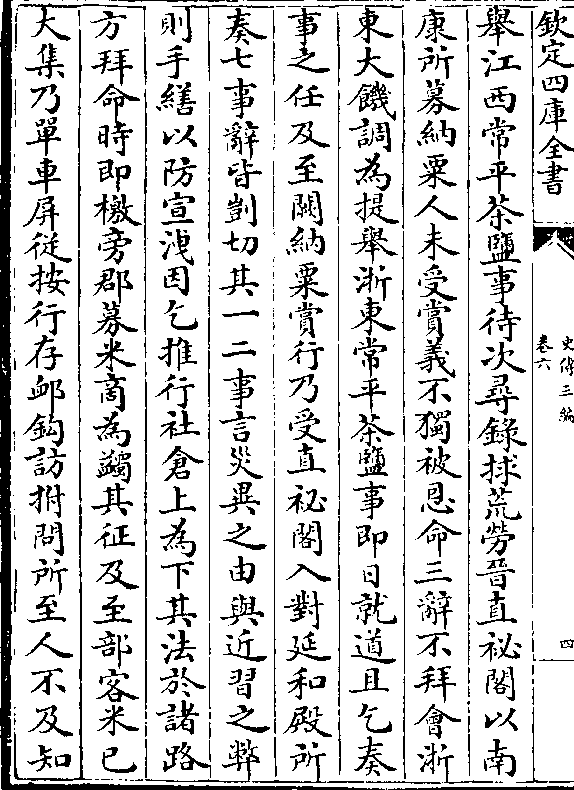 欽定四庫全書
史傳三編
卷六
四
舉江西常平茶鹽事待次尋錄捄荒勞晉直祕閣以南
康所募納粟人未受賞義不獨被恩命三辭不拜會浙
東大饑調為提舉浙東常平茶鹽事即日就道且乞奏
事之任及至闕納粟賞行乃受直祕閣入對延和殿所
奏七事辭皆剴切其一二事言災異之由與近習之弊
則手繕以防宣洩因乞推行社倉上為下其法於諸路
方拜命時即檄旁郡募米商為蠲其征及至部客米已
大集乃單車屏從按行存䘏鈎訪拊問所至人不及知